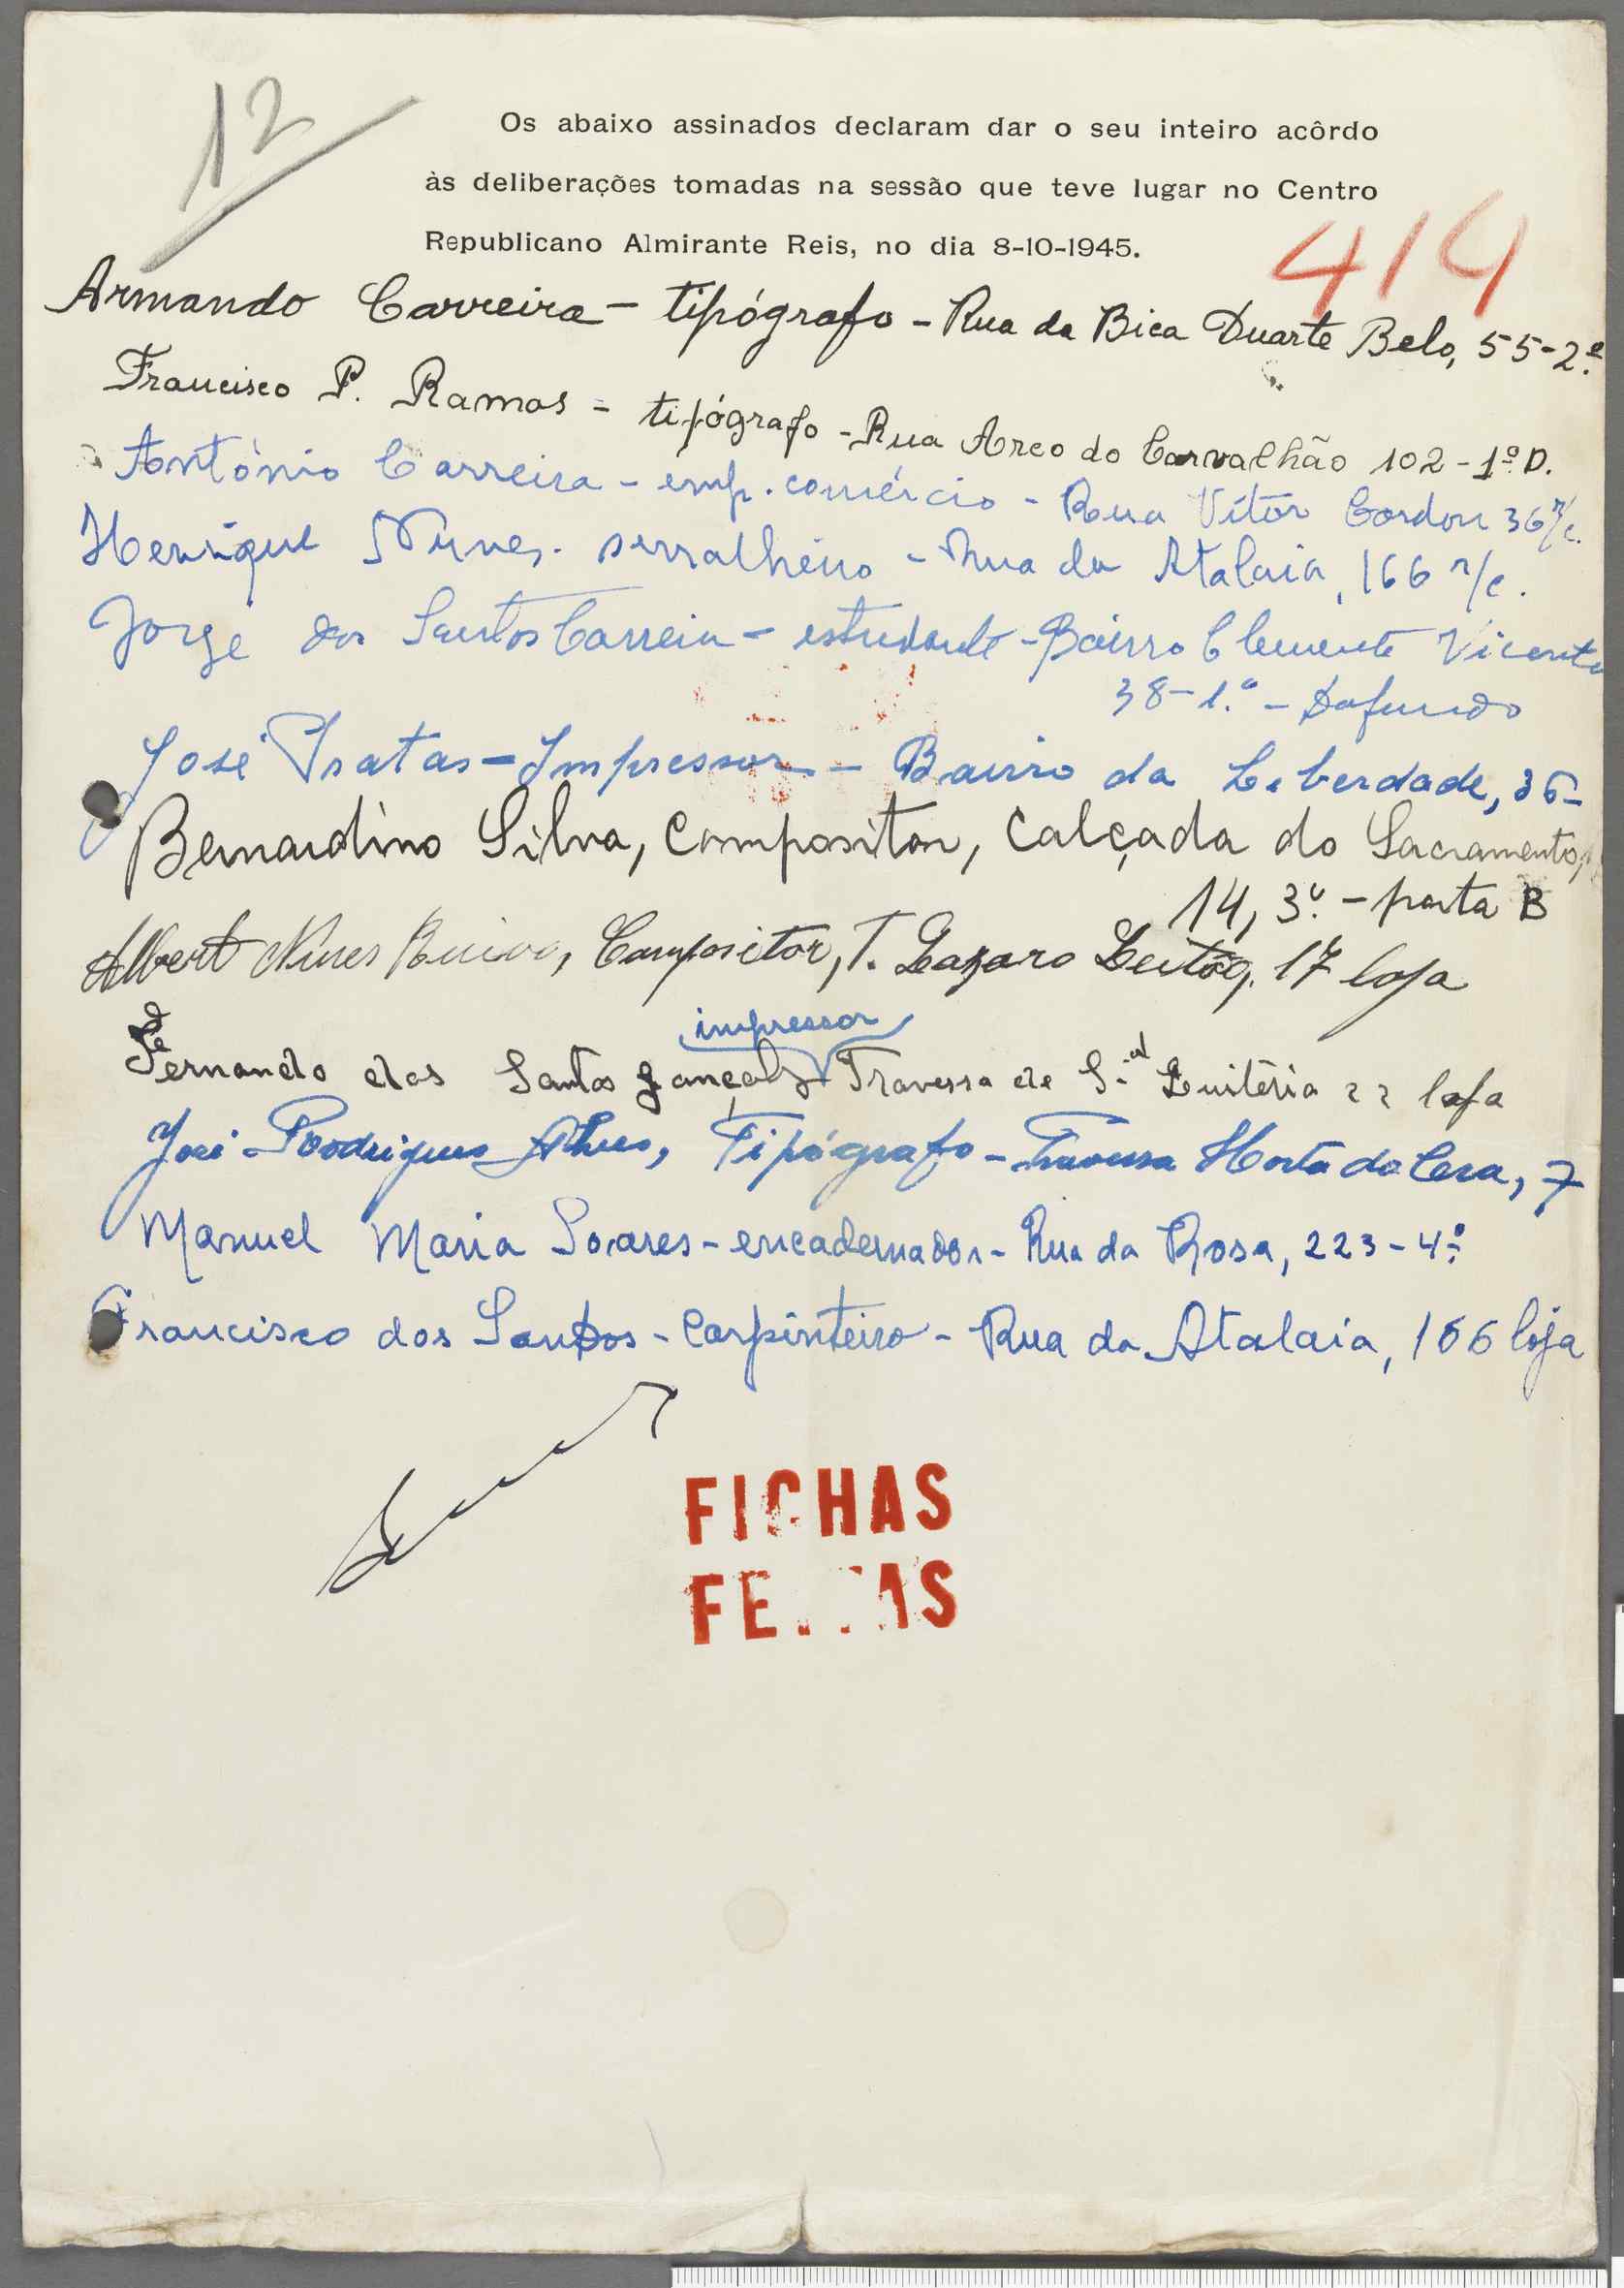 12
Os abaixo assinados declaram dar o seu inteiro acôrdo
às deliberações tomadas na sessão que teve lugar no Centro
Republicano Almirante Reis, no dia 8-10-1945.
414
Armando Carreira - tipógrafo - Rua da Bica Duarte Belo, 55-2.º
Francisco P. Ramos - tipógrafo - Rua Arco do Carvalhão 102-1.º D.
António Carreira - emp. comércio - Rua Vítor Cordon 36 r/c.
Henrique Nunes - serralheiro - Rua da Atalaia, 166 r/c.
Jorge dos Santos Carreira - estudante - Bairro Clemente Vicente
38-1.º - Dafundo
José Pratas - Impressor - Bairro da Liberdade, 36-
Bernardino Silva, compositor, Calçada do Sacramento,
14, 3.º - porta B
Albert Nunes, Compositor, T. Lazaro Leitão, 17 loja
impressor
Fernando dos Santos Gonçalves Travessa de S.ta Quitéria 22 loja
José Rodrigues Alves, Tipógrafo - Travessa Horta da Cera, 7
Manuel Maria Soares - encadernador - Rua da Rosa, 223-4.º
Francisco dos Santos - Carpinteiro - Rua da Atalaia, 166 loja
FICHAS
FEITAS